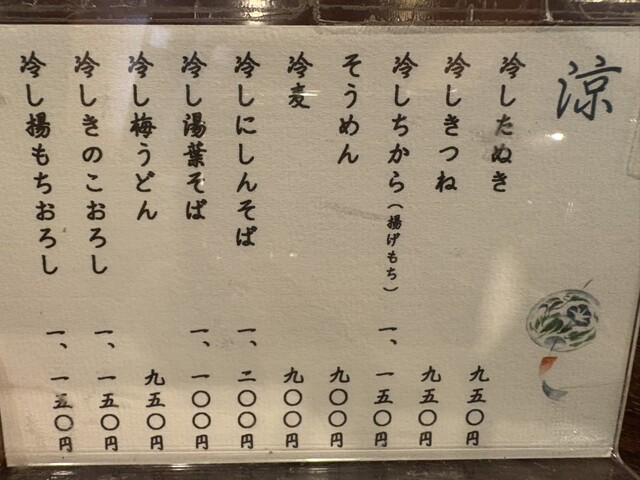 涼
冷したぬき 九五〇円
冷しきつね 九五〇円
冷しちから（揚げもち） 一、一五〇円
そうめん 九〇〇円
冷麦 九〇〇円
冷しにしんそば 一、二〇〇円
冷し湯葉そば 一、一〇〇円
冷し梅うどん 九五〇円
冷しきのこおろし 一、一五〇円
冷し揚もちおろし 一、一五〇円